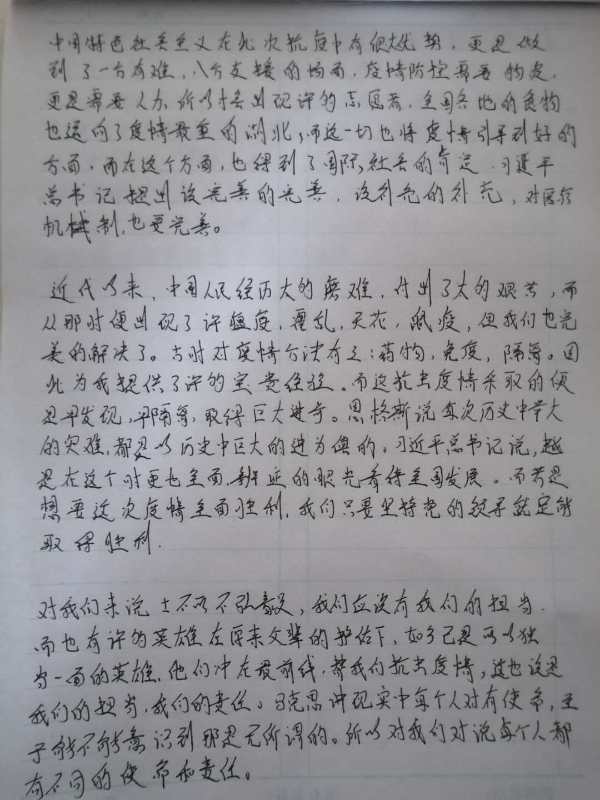 中国特色社会主义在此次抗疫中有很大优势，更是做
到了一方有难，八方支援的场面，疫情防控需要物资，
更是需要人力，所以才会出现许的志愿者，全国各地的食物
也运向了疫情最重的湖北，而这一切也将疫情引导到好的
方面，而在这个方面，也得到了国际社会的肯定．习近平
总书记提出该完善的完善，该补充的补充，对医疗
机械制，也要完善。
近代以来，中国人民经历大的磨难，付出了太的艰苦，而
从那时便出现了许瘟疫，霍乱，天花，鼠疫，但我们也完
美的解决了。当时对疫情方法有之：药物，免疫，隔离。因
此为我提供了许的宝贵经验．而这抗击疫情采取的便
是早发现，早隔离，取得巨大进步。恩格斯说每次历史中大
的灾难，都是以历史中巨大的进为偿的，习近平总书记说，越
是在这个时更也全面，辩证的眼光看待全国发展。而若是
想要这次疫情全面胜利，我们只要坚持党的领导就定能
取得胜利．
对我们来说 士不可不弘毅，我们应该有我们的担当．
而也有许的英雄在原来父辈的护佑下，如今已是可以独
当一面的英雄，他们冲在最前线，帮我们抗击疫情，这也该是
我们的担当，我们的责任。马克思讲现实中每个人对有使命，至
于能不能意识到那是无所谓的。所以对我们对说每个人都
有不同的使命和责任。